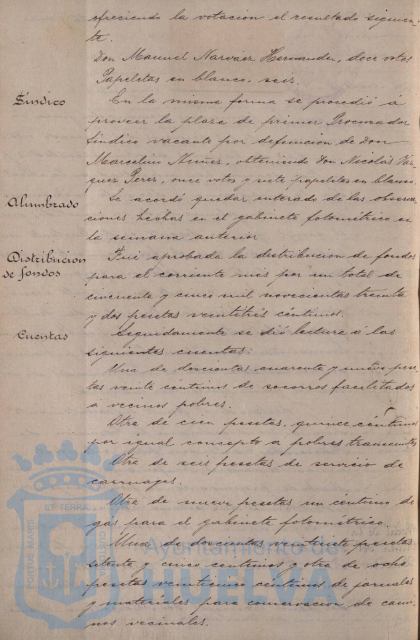 ofreciendo la votación el resultado siguien-
te.
Don Manuel Narváez Hernandez, doce votos
Papeletas en blanco, seis.
Síndico
En la misma forma se procedió á
proveer la plaza de primer Procurador
Síndico vacante por defuncion de Don
Marcelino Nuñez, obteniendo Don Nicolás Váz-
quez Perez, once votos y siete papeletas en blanco
Alumbrado
Se acordó quedar enterado de las observa-
ciones hechas en el gabinete fotométrico en
la semana anterior
Distribución
de fondos
Fué aprobada la distribucion de fondos
para el corriente mes por un total de
cincuenta y cinco mil novecientas treinta
y dos pesetas veintitrés céntimos.
Cuentas
Seguidamente se dió lectura á las
siguientes cuentas:
Una de doscientas cuarenta y nueve pese-
tas veinte céntimos de socorros facilitados
á vecinos pobres.
Otra de cien pesetas, quince céntimos
por igual concepto a pobres transeuntes
Otra de seis pesetas de servicio de
carruages.
Otra de nueve pesetas un céntimo de
gas para el gabinete fotométrico.
Una de doscientas veintisiete pesetas
setenta y cinco céntimos y otra de ocho
pesetas veinticinco céntimos de jornales
y materiales para conservacion de cami-
nos vecinales.
PORTUS MARIS
ET TERRAE
CUSTODIA
Ayuntamiento de
HUELVA